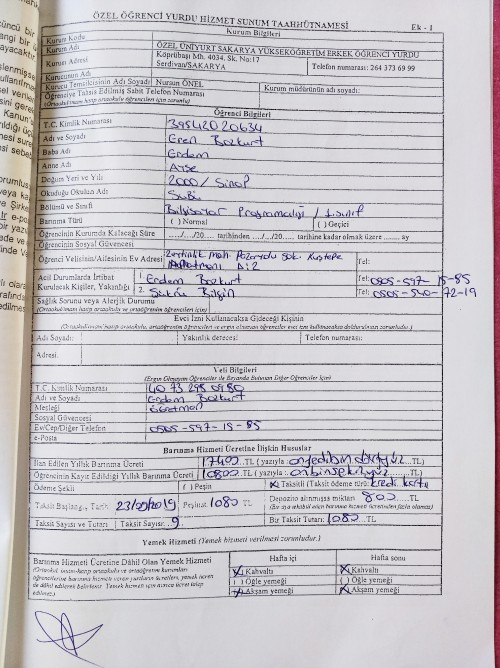 ÖZEL ÖĞRENCİ YURDU HİZMET SUNUM TAAHHÜTNAMESİ Ek - 1
Kurum Bilgileri
Kurum Kodu
Kurum Adı ÖZEL ÜNİYURT SAKARYA YÜKSEKÖĞRETİM ERKEK ÖĞRENCİ YURDU
Kurum Adresi Köprübaşı Mh. 4034. Sk. No:17 Serdivan/SAKARYA Telefon numarası: 264 373 69 99
Kurucunun Adı
Kurucu Temsilcisinin Adı Soyadı Nursun ÖNEL Kurum müdürünün adı soyadı:
Öğrenciye Tahsis Edilmiş Sabit Telefon Numarası
(Ortaokul/imam-hatip ortaokulu öğrencileri için zorunlu)
Öğrenci Bilgileri
T.C. Kimlik Numarası 39542020634
Adı ve Soyadı Eren Bozkurt
Baba Adı Erdem
Anne Adı Ayşe
Doğum Yeri ve Yılı 2000 / Sinop
Okuduğu Okulun Adı Subü
Bölümü ve Sınıfı Bilgisayar Programcılığı / 1.sınıf
Barınma Türü ( ) Normal ( ) Geçici
Öğrencinin Kurumda Kalacağı Süre ..../..../20.... tarihinden ..../..../20.... tarihine kadar olmak üzere ........ ay
Öğrencinin Sosyal Güvencesi
Öğrenci Velisinin/Ailesinin Ev Adresi Zeytinlik mah. Sok. Kuştepe Apartmanı D:2 Tel:
Acil Durumlarda İrtibat Kurulacak Kişiler, Yakınlığı 1. Erdem Bozkurt Tel: 0505-597-15-85
2. Şükrü Bilgin Tel: 0505-540-72-19
Sağlık Sorunu veya Alerjik Durumu
(Ortaokul/imam-hatip ortaokulu ve ortaöğretim öğrencileri için)
Evci İzni Kullanacaksa Gideceği Kişinin
(Ortaokul/imam-hatip ortaokulu, ortaöğretim öğrencileri ve ergin olmayan öğrenciler evci izni kullanacaksa doldurulması zorunludur.)
Adı Soyadı: Yakınlık derecesi: Telefon numarası:
Adresi
Veli Bilgileri
(Ergin Olmayan Öğrenciler ile Bursunda Bulunan Diğer Öğrenciler İçin)
T.C. Kimlik Numarası 40 73 298 0980
Adı ve Soyadı Erdem Bozkurt
Mesleği Öğretmen
Sosyal Güvencesi
Ev/Cep/Diğer Telefon 0505-597-15-85
e-Posta
Barınma Hizmeti Ücretine İlişkin Hususlar
İlan Edilen Yıllık Barınma Ücreti 17400...TL ( yazıyla: onyedibindörtyüz....TL)
Öğrencinin Kayıt Edildiği Yıllık Barınma Ücreti 10800...TL ( yazıyla: onbinsekizyüz....TL)
Ödeme Şekli ( ) Peşin (X) Taksitli (Taksit ödeme türü: kredi kartı
Taksit Başlangıç Tarihi 23/09/2019 Peşinat 1080 TL Depozito alınmışsa miktarı 800....TL
Taksit Sayısı ve Tutarı Taksit Sayısı: 9 Bir Taksit Tutarı: 1080...TL
Yemek Hizmeti (Yemek hizmeti verilmesi zorunludur.)
Barınma Hizmeti Ücretine Dâhil Olan Yemek Hizmeti Hafta içi Hafta sonu
(X) Kahvaltı (X) Kahvaltı
( ) Öğle yemeği ( ) Öğle yemeği
(X) Akşam yemeği (X) Akşam yemeği